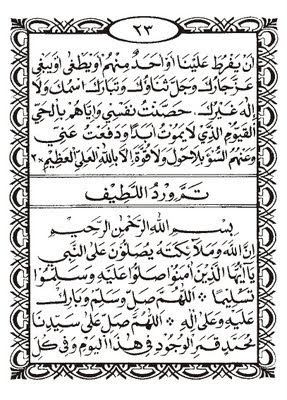 ٢٣
اَنْ يَفْرُطَ عَلَيْنَا اَوْ اَحَدٌ مِنْهُمْ اَوْ يَطْغٰى اَوْ يَبْغٰى
عَزَّ جَارُكَ وَجَلَّ ثَنَاؤُكَ وَتَبَارَكَ اسْمُكَ وَلَا
اِلٰهَ غَيْرُكَ. حَصَّنْتُ نَفْسِيْ وَاِيَّاهُمْ بِالْحَيِّ
الْقَيُّوْمِ الَّذِيْ لَا يَمُوْتُ اَبَدًا وَدَفَعْتُ عَنِّيْ
وَعَنْهُمُ السُّوْءَ بِلَاحَوْلَ وَلَا قُوَّةَ اِلَّا بِاللهِ الْعَلِيِّ الْعَظِيْمِ ×٣
تَمَّ وِرْدُ اللَّطِيْف
بِسْمِ اللهِ الرَّحْمٰنِ الرَّحِيْمِ
اِنَّ اللهَ وَمَلَآئِكَتَهُ يُصَلُّوْنَ عَلَى النَّبِيِّ
يٰاَيُّهَا الَّذِيْنَ اٰمَنُوْا صَلُّوْا عَلَيْهِ وَسَلِّمُوْا
تَسْلِيْمًا * اَللّٰهُمَّ صَلِّ وَسَلِّمْ وَبَارِكْ
عَلَيْهِ وَعَلٰى اٰلِهِ * اَللّٰهُمَّ صَلِّ عَلٰى سَيِّدِنَا
مُحَمَّدٍ قَمَرِ الْوُجُوْدِ فِيْ هٰذَا الْيَوْمِ وَفِيْ كُلِّ